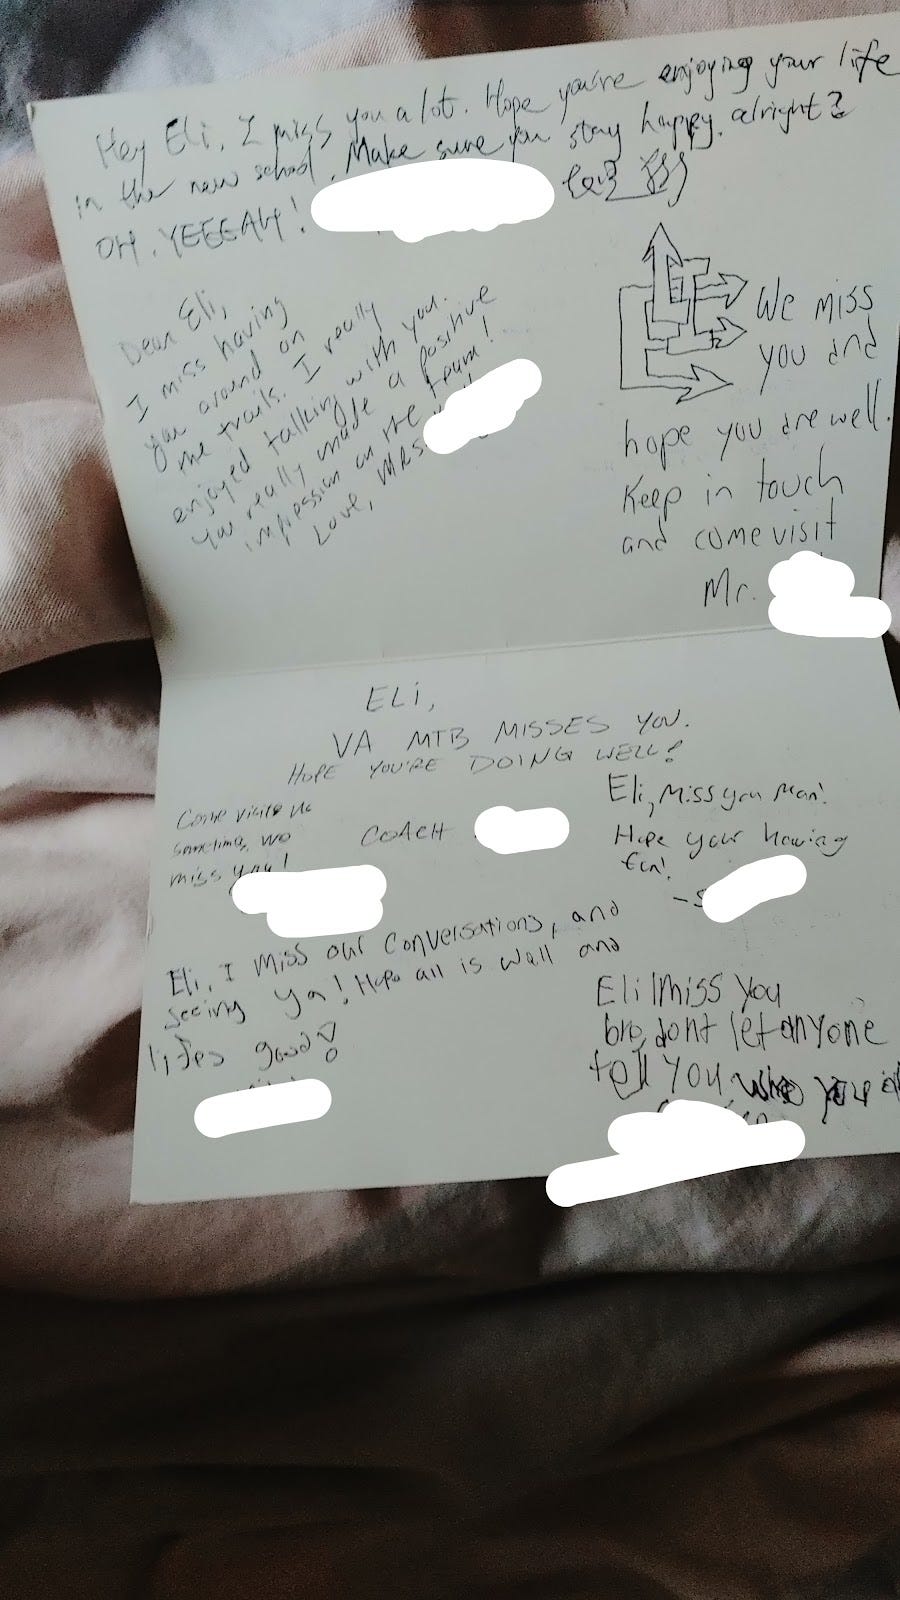 Hey Eli, I miss you a lot. Hope you're enjoying your life
in the new school. Make sure you stay happy, alright?
OH, YEEEAH!
Dear Eli,
I miss having
you around on
the trails. I really
enjoyed talking with you.
You really made a positive
impression on the team!
Love, MRS
We miss
you and
hope you are well.
Keep in touch
and come visit
Mr.
ELi,
VA MTB MISSES YOU.
HOPE YOU'RE DOING WELL!
COACH
Come visite us
sometime, we
miss you!
Eli, Miss you Man!
Hope your having
fun!
-S
Eli, I miss our conversations, and
seeing ya! Hope all is well and
lifes good!
Eli I miss you
bro, dont let anyone
tell you who you